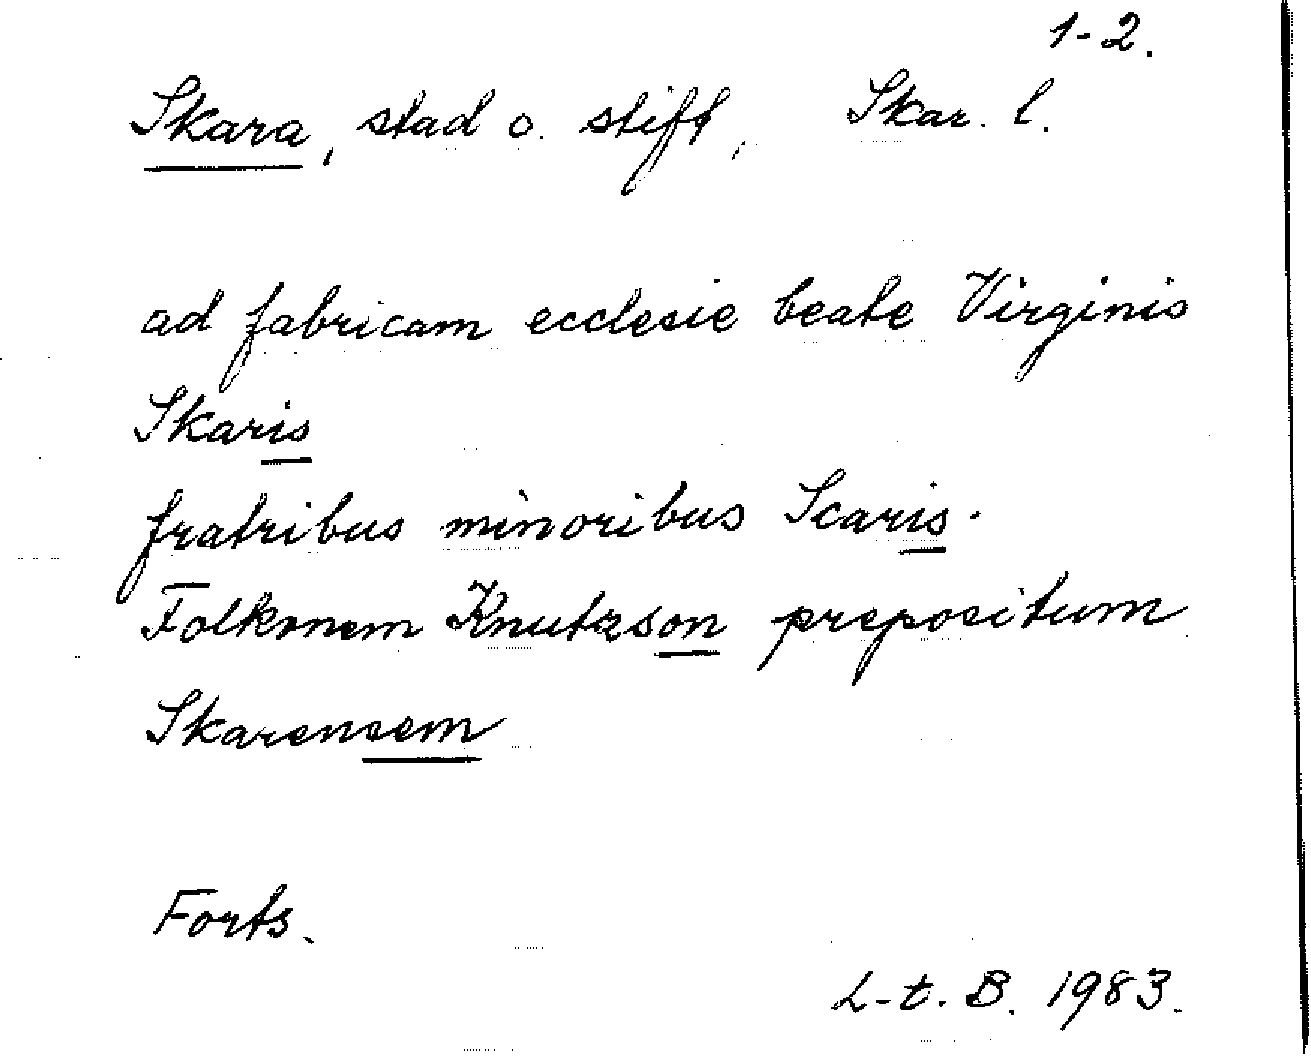 1-2.
Skara, stad o. stift, Skar. l.
ad fabricam ecclesie beate Virginis
Skaris
fratribus minoribus Scaris.
Folkonem Knutzson prepositum
Skarensem
Forts.
L-t. B. 1983.